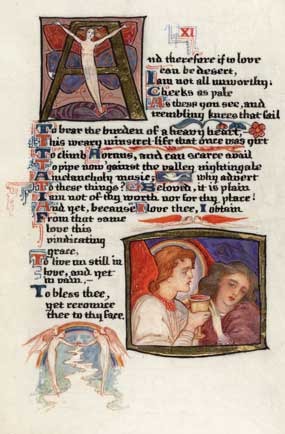 XI
And therefore if to love
can be desert,
I am not all unworthy.
Cheeks as pale
As these you see, and
trembling knees that fail
To bear the burden of a heavy heart;
This weary minstrel life that once was girt
To climb Aornus, and can scarce avail
To pipe now 'gainst the valley nightingale
A melancholy music; why advert
To these things? O Beloved, it is plain
I am not of thy worth nor for thy place!
And yet, because I love thee, I obtain
From that same
love this
vindicating
grace,
To live on still in
love, and yet
in vain,—
To bless thee,
yet renounce
thee to thy face.